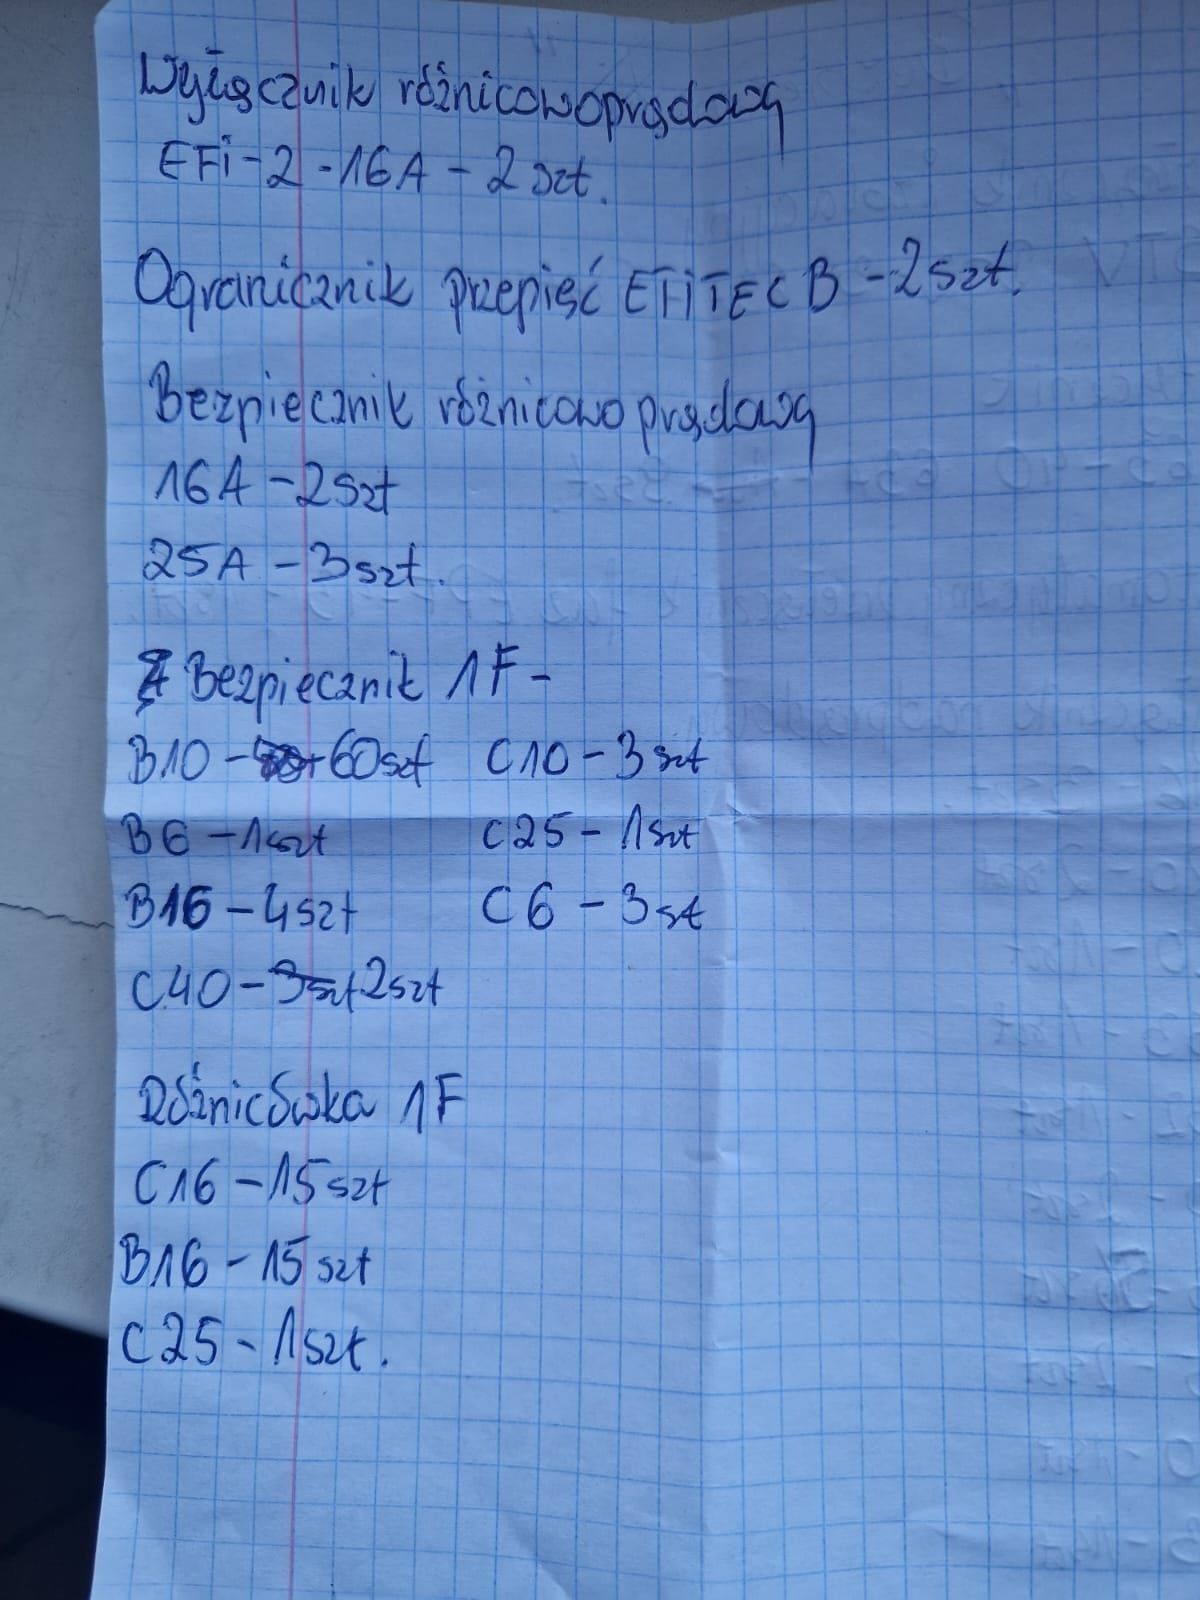 Wyłącznik różnicowoprądowy
EFi-2-16A - 2szt.
Ogranicznik przepięć ETiTEC B - 2szt.
Bezpiecznik różnicowo prądowy
16A - 2szt
25A - 3szt.
Bezpiecznik 1F -
B10 - 60szt C10 - 3szt
B6 - 1szt C25 - 1szt
B16 - 4szt C6 - 3st
C40 - 3szt 2szt
Różnicówka 1F
C16 - 15szt
B16 - 15szt
C25 - 1szt.